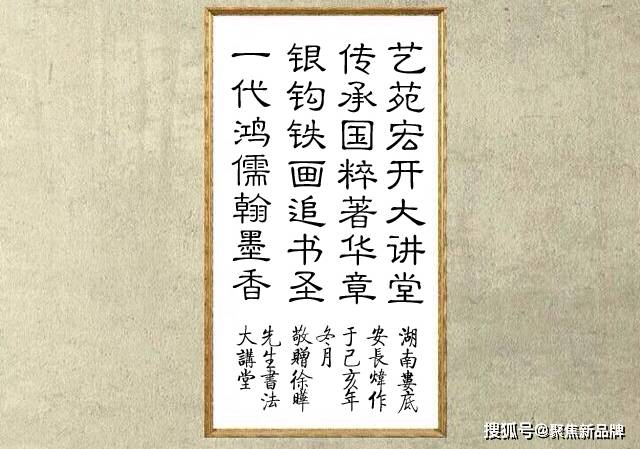 艺苑宏开大讲堂
传承国粹著华章
银钩铁画追书圣
一代鸿儒翰墨香
湖南娄底
安長煒作
于己亥年
冬月
敬贈徐暐
先生書法
大講堂
搜狐号@聚焦新品牌